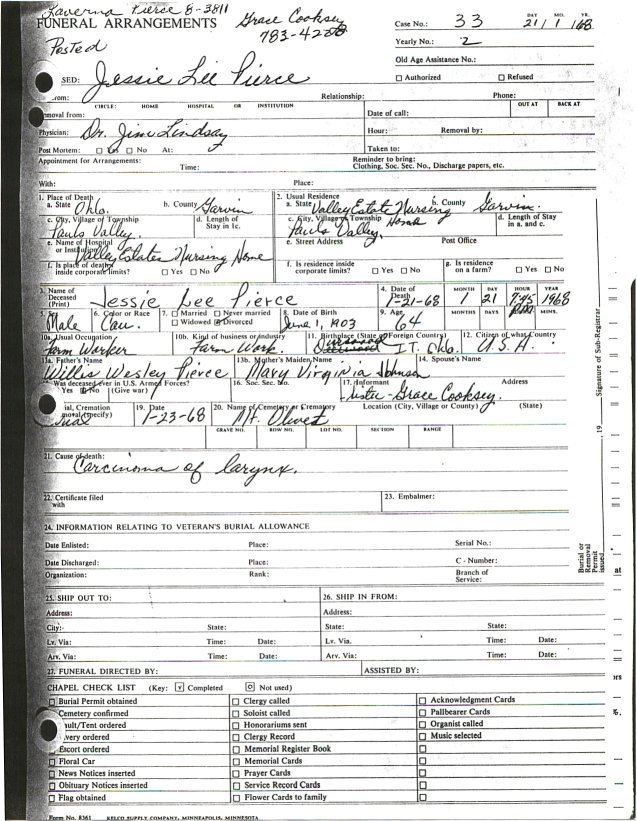 Kaverna Pierce 8-3811
FUNERAL ARRANGEMENTS Grace Cooksey Case No.: 33 DAY MO. YR. 21/1/68
Posted 783-4228 Yearly No.: 2
Old Age Assistance No.:
SED: Jessie Lee Pierce Authorized Refused
rom: Relationship: Phone:
CIRCLE: HOME HOSPITAL OR INSTITUTION OUT AT BACK AT
moval from: Date of call:
Physician: Dr. Jim Lindsay Hour: Removal by:
Post Mortem: Yes No At: Taken to:
Appointment for Arrangements: Time: Reminder to bring: Clothing, Soc. Sec. No., Discharge papers, etc.
With: Place:
1. Place of Death 2. Usual Residence
a. State Okla. b. County Garvin a. State Valley Estate Nursing Home b. County Garvin
c. City, Village or Township Pauls Valley. d. Length of Stay in 1c. c. City, Village or Township Pauls Valley. d. Length of Stay in a. and c.
e. Name of Hospital or Institution Valley Estates Nursing Home e. Street Address Post Office
f. Is place of death inside corporate limits? Yes No f. Is residence inside corporate limits? Yes No g. Is residence on a farm? Yes No
3. Name of Deceased (Print) Jessie Lee Pierce 4. Date of Death 1-21-68 MONTH 1 DAY 21 HOUR 7:45 YEAR 1968
5. Sex Male 6. Color or Race Cau. 7. Married Never married Widowed Divorced 8. Date of Birth June 1, 1903 9. Age 64 MONTHS DAYS HOURS MINS.
10a. Usual Occupation Farm Worker 10b. Kind of business or industry Farm Work. 11. Birthplace (State or Foreign Country) I.T. Okla. 12. Citizen of what Country U.S.A.
13a. Father's Name Willis Wesley Pierce 13b. Mother's Maiden Name Mary Virginia Johnson 14. Spouse's Name
Was deceased ever in U.S. Armed Forces? Yes No (Give war) 16. Soc. Sec. No. 17. Informant Sister - Grace Cooksey. Address
ial, Cremation moval (specify) 19. Date 1-23-68 20. Name of Cemetery or Crematory Mt. Olivet Location (City, Village or County) (State)
GRAVE NO. ROW NO. LOT NO. SECTION RANGE
21. Cause of death: Carcinoma of larynx.
22. Certificate filed with 23. Embalmer:
24. INFORMATION RELATING TO VETERAN'S BURIAL ALLOWANCE
Date Enlisted: Place: Serial No.:
Date Discharged: Place: C - Number:
Organization: Rank: Branch of Service:
25. SHIP OUT TO: 26. SHIP IN FROM:
Address: Address:
City: State: State: State:
Lv. Via: Time: Date: Lv. Via. Time: Date:
Arv. Via: Time: Date: Arv. Via: Time: Date:
27. FUNERAL DIRECTED BY: ASSISTED BY:
CHAPEL CHECK LIST (Key: Completed Not used)
Burial Permit obtained Clergy called Acknowledgment Cards
Cemetery confirmed Soloist called Pallbearer Cards
ault/Tent ordered Honorariums sent Organist called
very ordered Clergy Record Music selected
Escort ordered Memorial Register Book
Floral Car Memorial Cards
News Notices inserted Prayer Cards
Obituary Notices inserted Service Record Cards
Flag obtained Flower Cards to family
Form No. 8361 KELCO SUPPLY COMPANY, MINNEAPOLIS, MINNESOTA
Signature of Sub-Registrar
19
Burial or Removal Permit issued
at